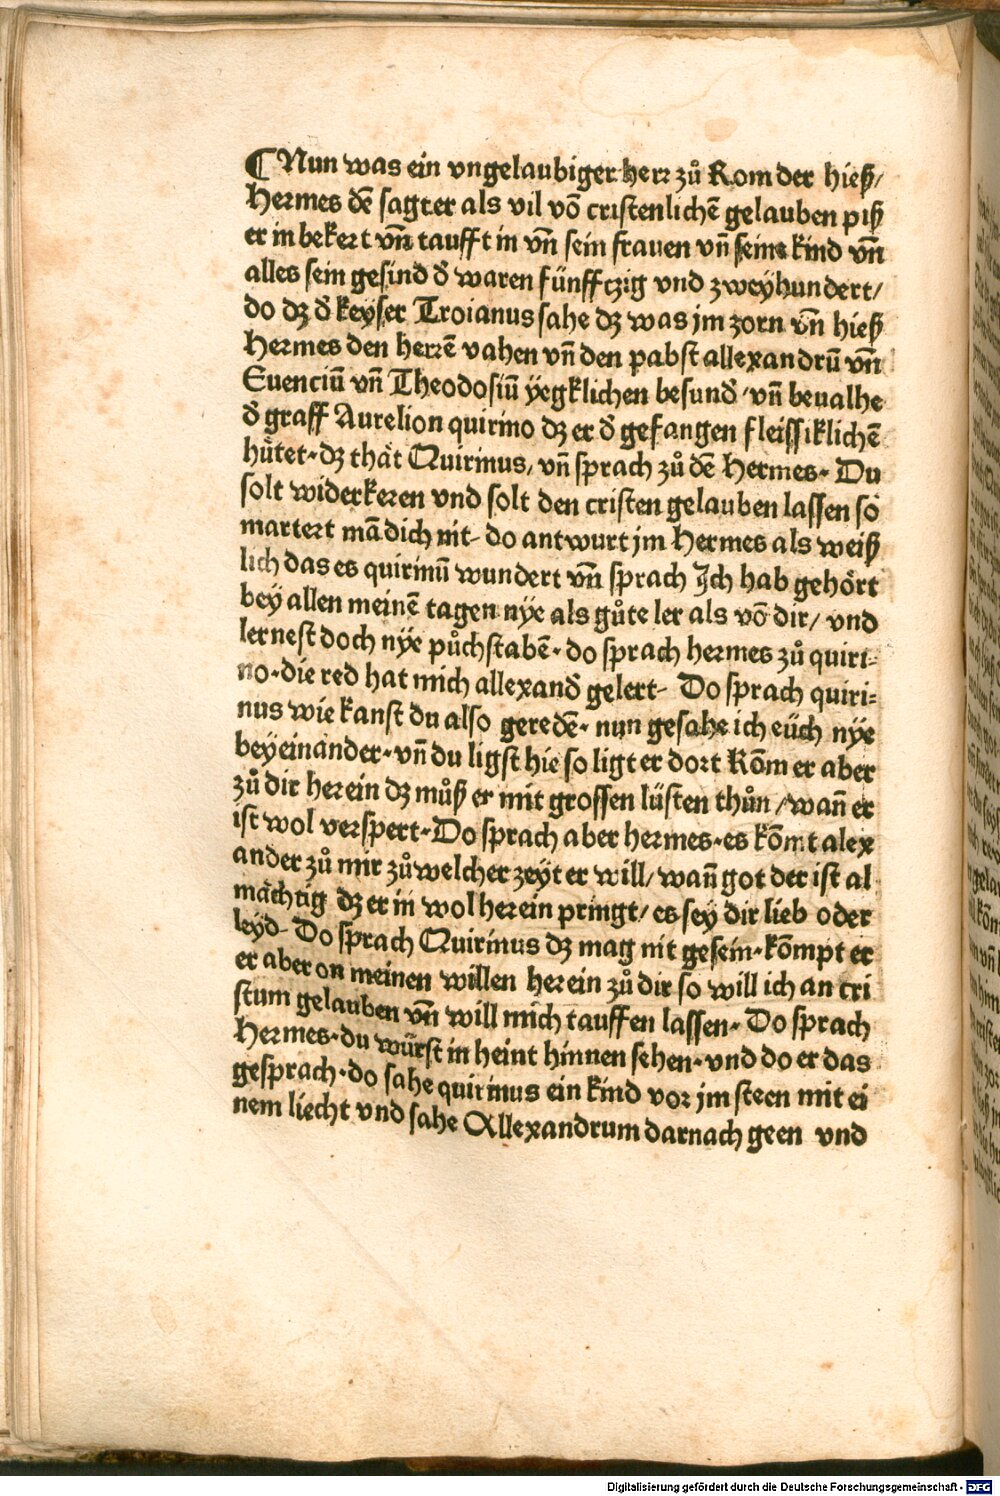 ⸿Nun was ein vngelaubiger herr zů Rom der hieß/
Hermes dē sagt er als vil vō cristenlichē gelauben piß
er in bekert vn̄ taufft in vn̄ sein frauen vn̄ seine kind vn̄
alles sein gesind d̄ waren fünffczig vnd zweyhundert/
do dz d̄ keyser Troianus sahe dz was jm zorn vn̄ hieß
Hermes den herrē vahen vn̄ den pabst allexandrū vn̄
Euenciū vn̄ Theodosiū ÿegklichen besund̄ / vn̄ beualhe
d̄ graff Aurelion quirino dz er d̄ gefangen fleissiklichē
hůtet· dz thåt Quirinus, vn̄ sprach zů dē Hermes· Du
solt widerkeren vnd solt den cristen gelauben lassen so
martert mā dich nit· do antwurt jm Hermes als weiß
lich das es quirinū wundert vn̄ sprach Ich hab gehört
bey allen meinē tagen nÿe als gůte ler als vō dir/ vnd
lernest doch nÿe půchstabē· do sprach hermes zů quiri⸗
no· die red hat mich allexand̄ gelert· Do sprach quiri⸗
nus wie kanst du also geredē· nun gesahe ich eüch nÿe
bey einander· vn̄ du ligst hie so ligt er dort Kōm er aber
zů dir herein dz můß er mit grossen lüsten thůn / wan̄ er
ist wol verspert· Do sprach aber hermes· es kōmt alex
ander zů mir zů welcher zeyt er will/ wan̄ got der ist al
måchtig dz er in wol herein pringt/ es sey dir lieb oder
leyd· Do sprach Quirinus dz mag nit gesein· kōmpt er
er aber on meinen willen herein zů dir so will ich an cri
stum gelauben vn̄ will mich tauffen lassen· Do sprach
Hermes· du würst in heint hinnen sehen· vnd do er das
gesprach· do sahe quirinus ein kind vor jm steen mit ei
nem liecht vnd sahe Allexandrum darnach geen vnd
Digitalisierung gefördert durch die Deutsche Forschungsgemeinschaft - DFG